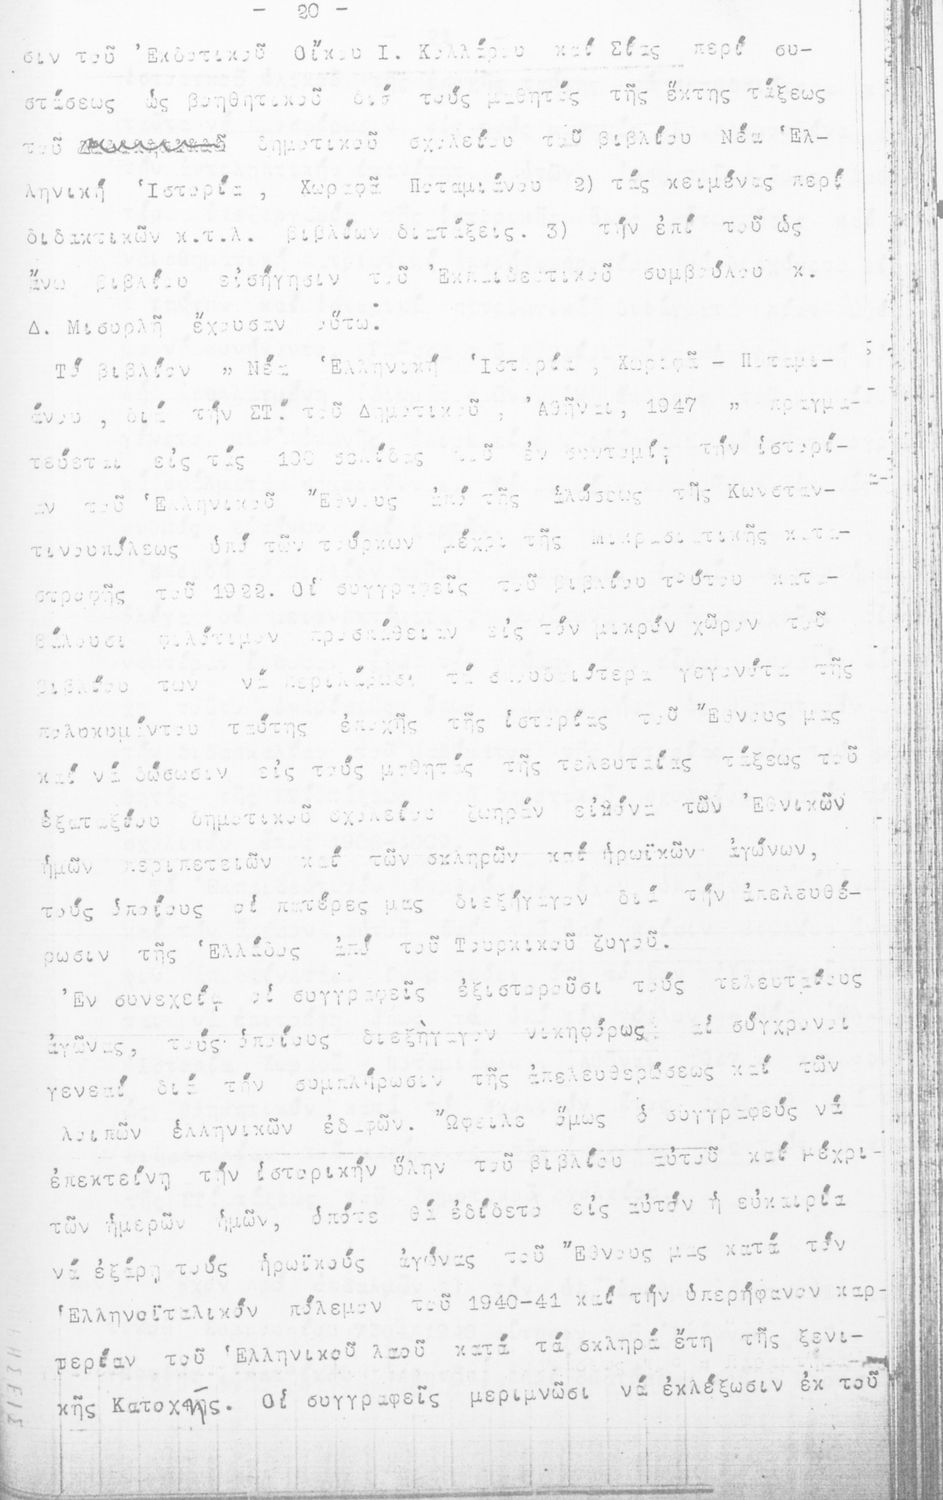 - 20 -
σιν τοῦ Ἐκδοτικοῦ Οἴκου Ι. Κολλάρου καί Σίας περί συ-
στάσεως ὡς βοηθητικοῦ διά τούς μαθητάς τῆς ἕκτης τάξεως
τοῦ δημοτικοῦ σχολείου τοῦ βιβλίου Νέα Ἑλ-
ληνική Ἱστορία, Χωραφᾶ Ποταμιάνου 2) τάς κειμένας περί
διδακτικῶν κ.τ.λ. βιβλίων διατάξεις. 3) τήν ἐπί τοῦ ὡς
ἄνω βιβλίου εἰσήγησιν τοῦ Ἐκπαιδευτικοῦ συμβούλου κ.
Δ. Μισυρλῆ ἔχουσαν οὕτω:
Τό βιβλίον " Νέα Ἑλληνική Ἱστορία, Χωραφᾶ - Ποταμι-
άνου, διά τήν ΣΤ΄ τοῦ Δημοτικοῦ, Ἀθῆναι, 1947 " πραγμα-
τεύεται εἰς τάς 108 σελίδας τοῦ ἐν συντομίᾳ τήν ἱστορί-
αν τοῦ Ἑλληνικοῦ Ἔθνους ἀπό τῆς ἁλώσεως τῆς Κωνσταν-
τινουπόλεως ὑπό τῶν τούρκων μέχρι τῆς μικρασιατικῆς κατα-
στροφῆς τοῦ 1922. Οἱ συγγραφεῖς τοῦ βιβλίου τούτου κατα-
βάλουσι φιλότιμον προσπάθειαν εἰς τόν μικρόν χῶρον τοῦ
βιβλίου των νά περιλάβωσι τά σπουδαιότερα γεγονότα τῆς
πολυκυμάντου ταύτης ἐποχῆς τῆς ἱστορίας τοῦ Ἔθνους μας
καί νά δώσωσιν εἰς τούς μαθητάς τῆς τελευταίας τάξεως τοῦ
ἑξαταξίου δημοτικοῦ σχολείου ζωηράν εἰκόνα τῶν Ἐθνικῶν
ἡμῶν περιπετειῶν καί τῶν σκληρῶν καί ἡρωϊκῶν ἀγώνων,
τούς ὁποίους οἱ πατέρες μας διεξήγαγον διά τήν ἀπελευθέ-
ρωσιν τῆς Ἑλλάδος ἀπό τοῦ Τουρκικοῦ ζυγοῦ.
Ἐν συνεχείᾳ οἱ συγγραφεῖς ἐξιστοροῦσι τούς τελευταίους
ἀγῶνας, τούς ὁποίους διεξήγαγον νικηφόρως αἱ σύγχρονοι
γενεαί διά τήν συμπλήρωσιν τῆς ἀπελευθερώσεως καί τῶν
λοιπῶν ἑλληνικῶν ἐδαφῶν. Ὤφειλε ὅμως ὁ συγγραφεύς νά
ἐπεκτείνῃ τήν ἱστορικήν ὕλην τοῦ βιβλίου αὐτοῦ καί μέχρι-
τῶν ἡμερῶν ἡμῶν, ὁπότε θά ἐδίδετο εἰς αὐτόν ἡ εὐκαιρία
νά ἐξάρῃ τούς ἡρωϊκούς ἀγῶνας τοῦ Ἔθνους μας κατά τόν
Ἑλληνοϊταλικόν πόλεμον τοῦ 1940-41 καί τήν ὑπερήφανον καρ-
τερίαν τοῦ Ἑλληνικοῦ λαοῦ κατά τά σκληρά ἔτη τῆς ξενι-
κῆς Κατοχῆς. Οἱ συγγραφεῖς μεριμνῶσι νά ἐκλέξωσιν ἐκ τοῦ